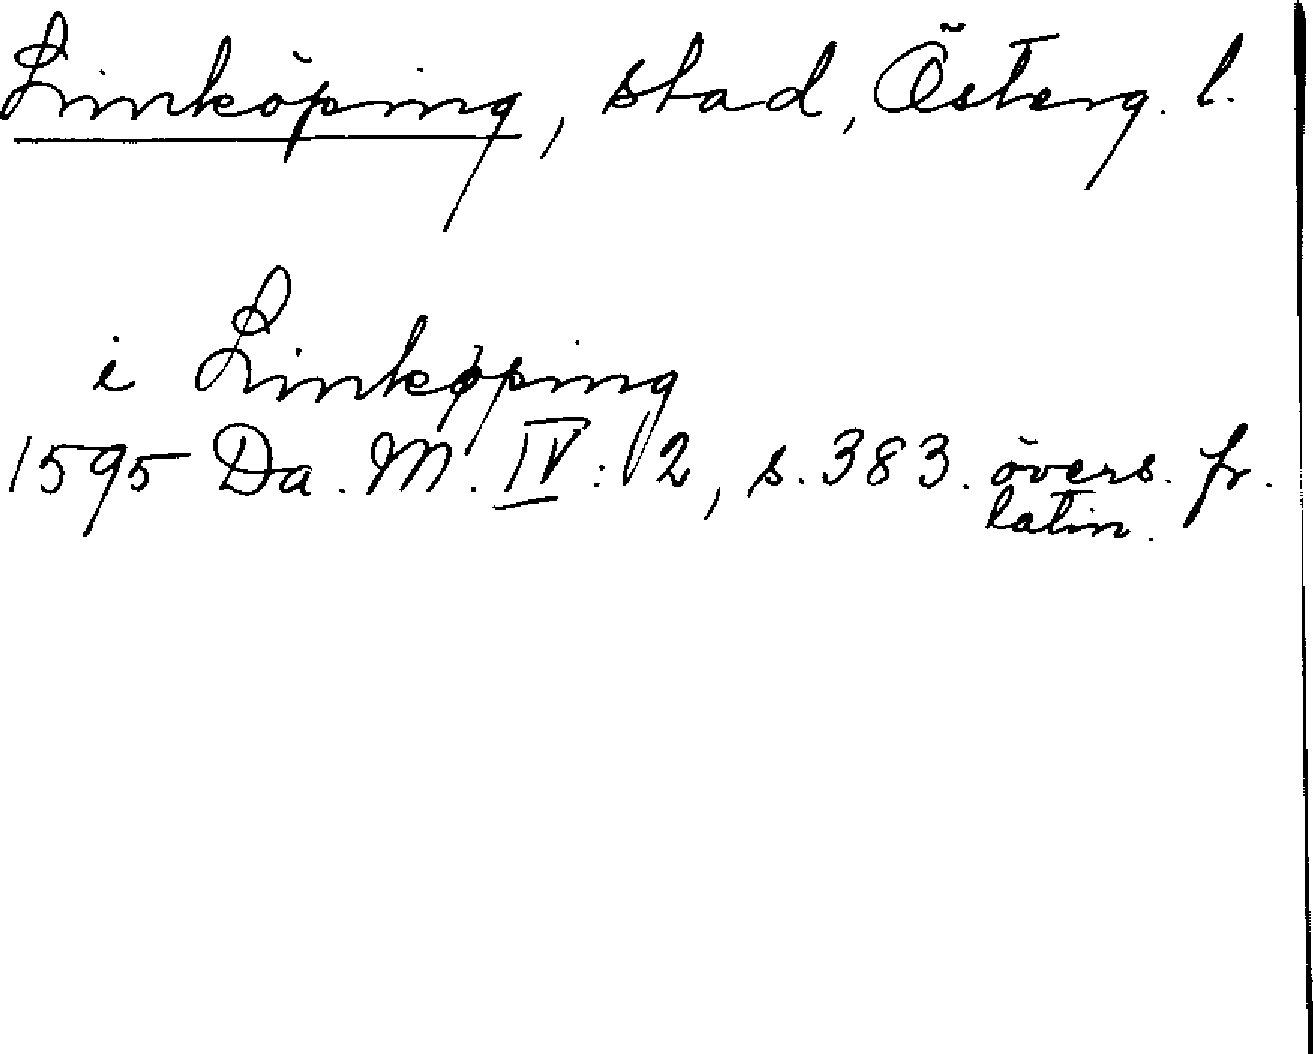 Linköping, stad, Österg. l.
i Linkøping
1595 Da. M. IV: 2, s. 383. övers. fr.
latin.